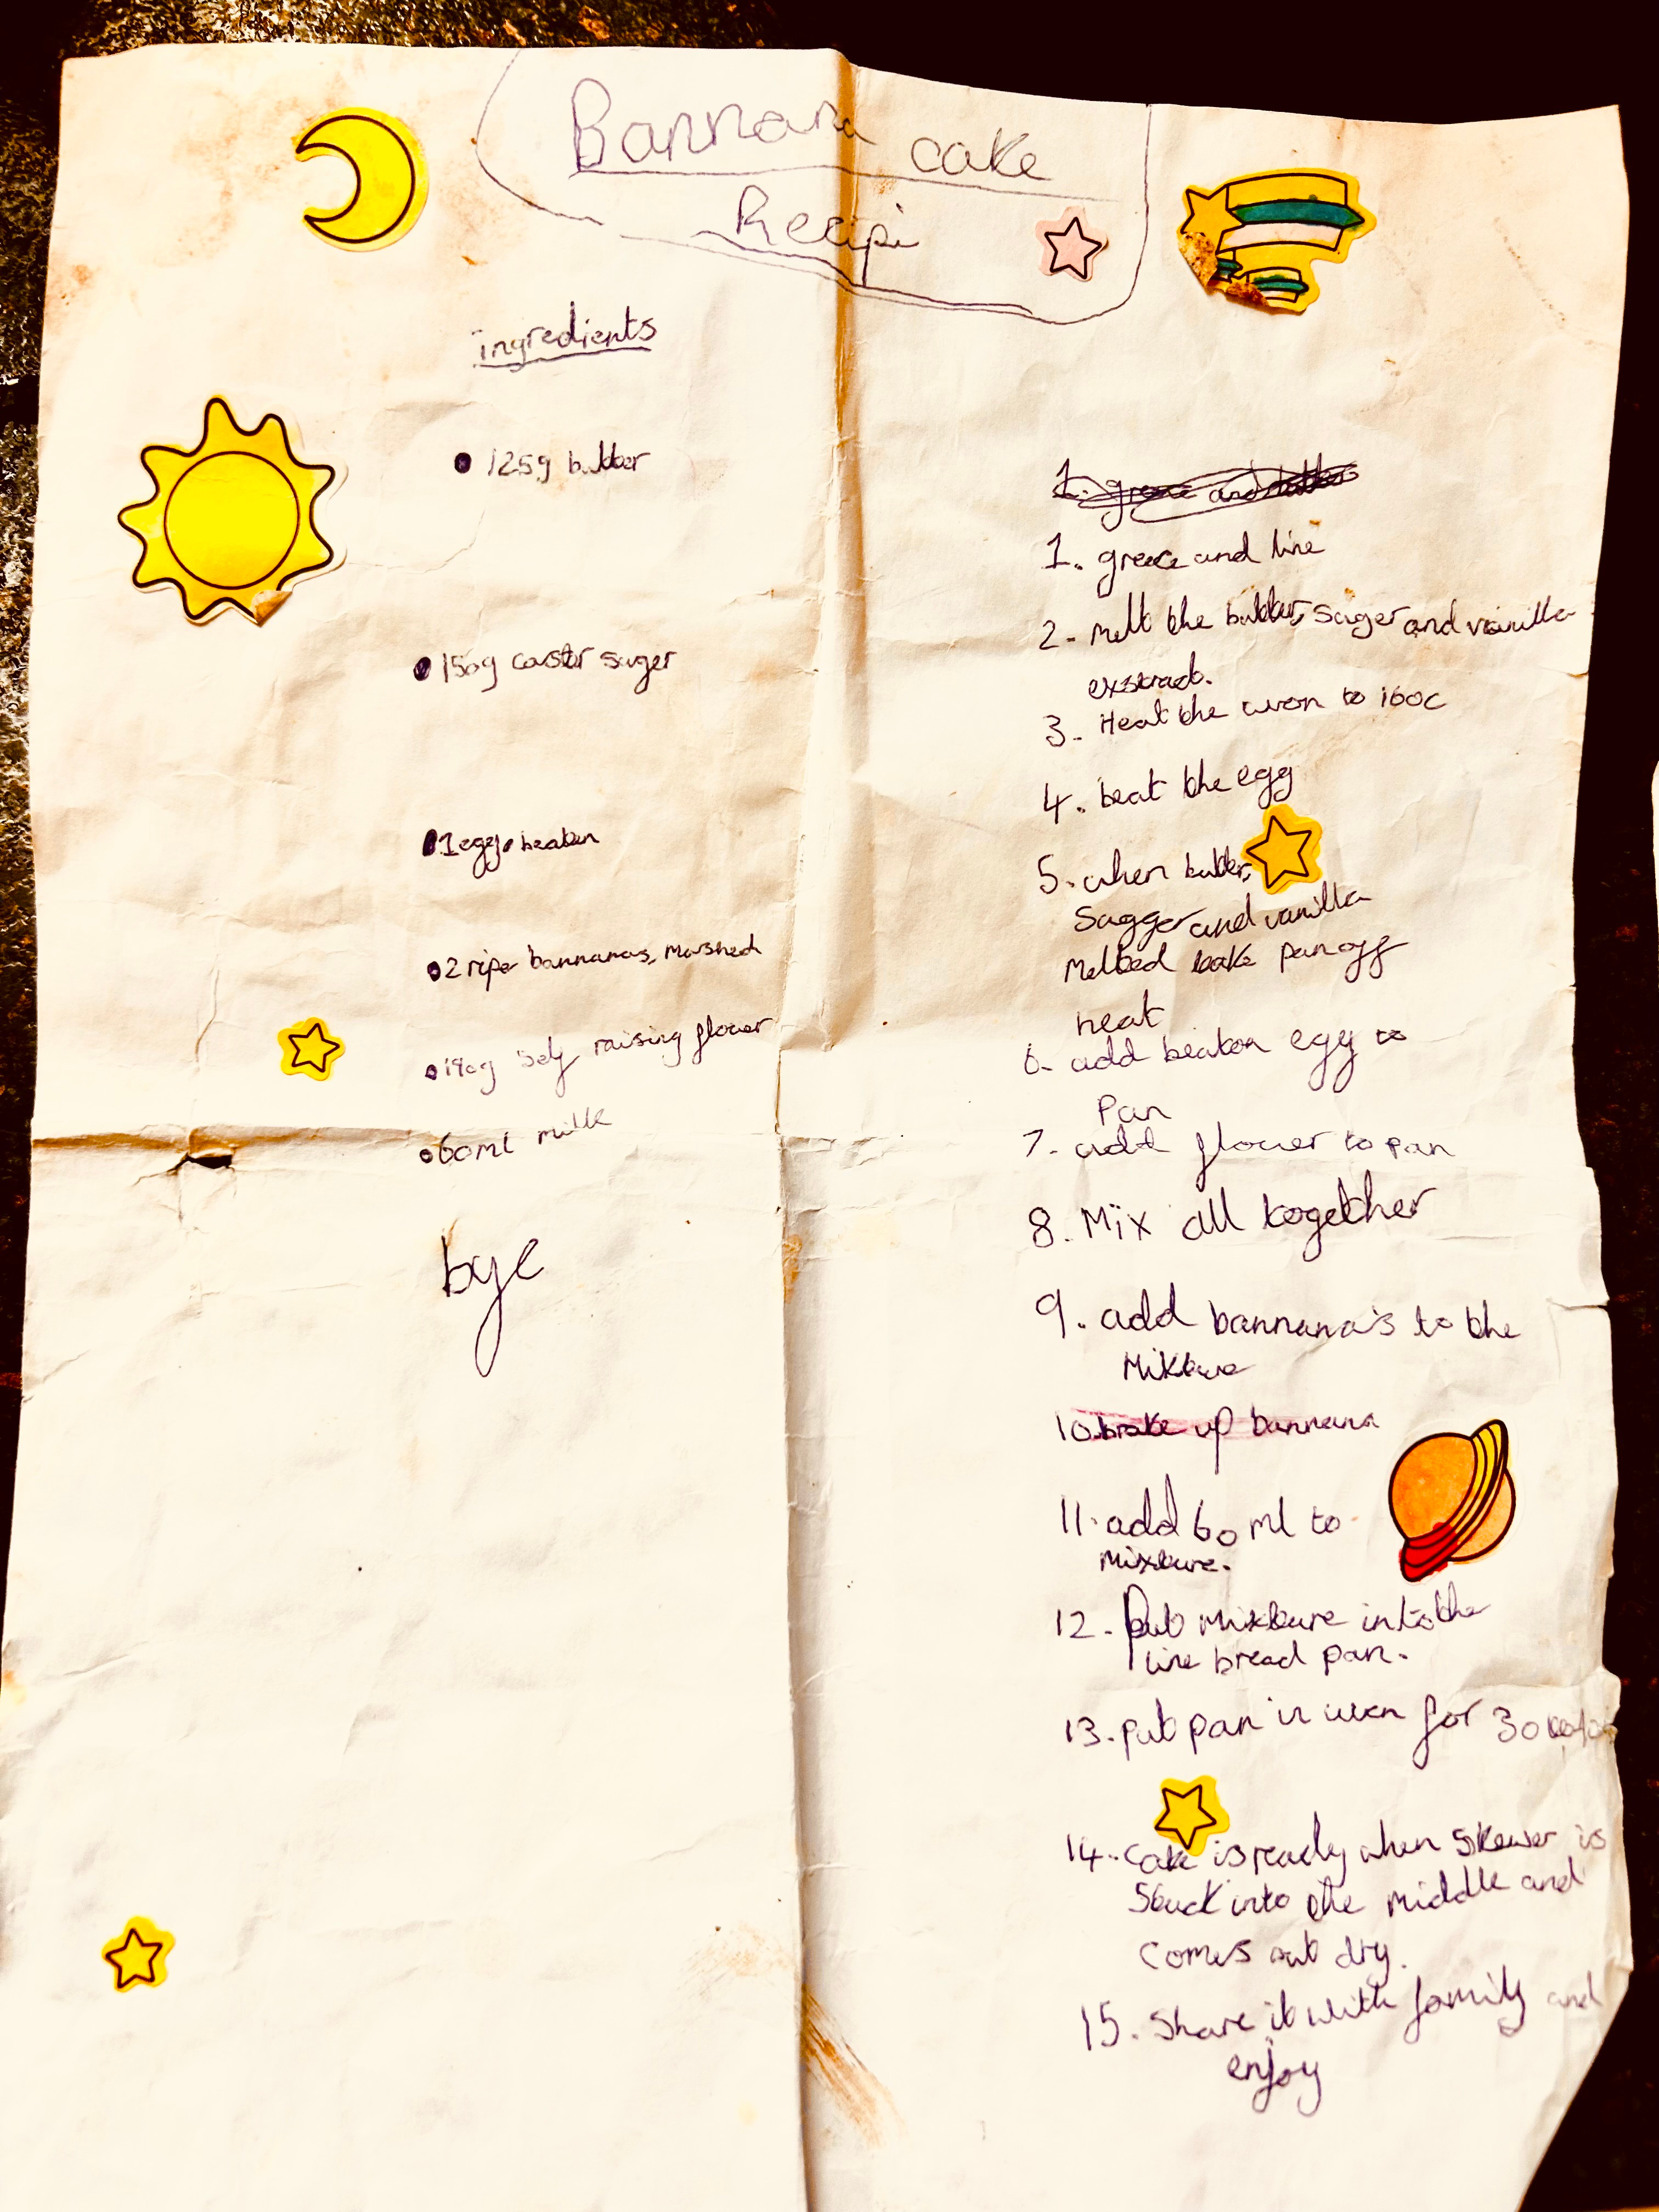 Bannana cake
Recipi
ingredients
• 125g butter
• 150g castor suger
• 1 egg, beaten
• 2 ripe bannanas, mashed
• 190g self raising flower
• 60ml milk
bye
1. greace and line
2. melt the butter, suger and vanilla
exstract.
3. Heat the uven to 160c
4. beat the egg
5. when butter,
Sugger and vanilla
melted take pan off
heat
6. add beaton egg to
Pan
7. add flower to pan
8. Mix all together
9. add bannana's to the
Mikture
10. brake up bannana
11. add 60 ml to
mixture.
12. Put mixture into the
line bread pan.
13. put pan in uven for 30
14. cake is ready when skewer is
stuck into the middle and
comes out dry.
15. Share it with family and
enjoy